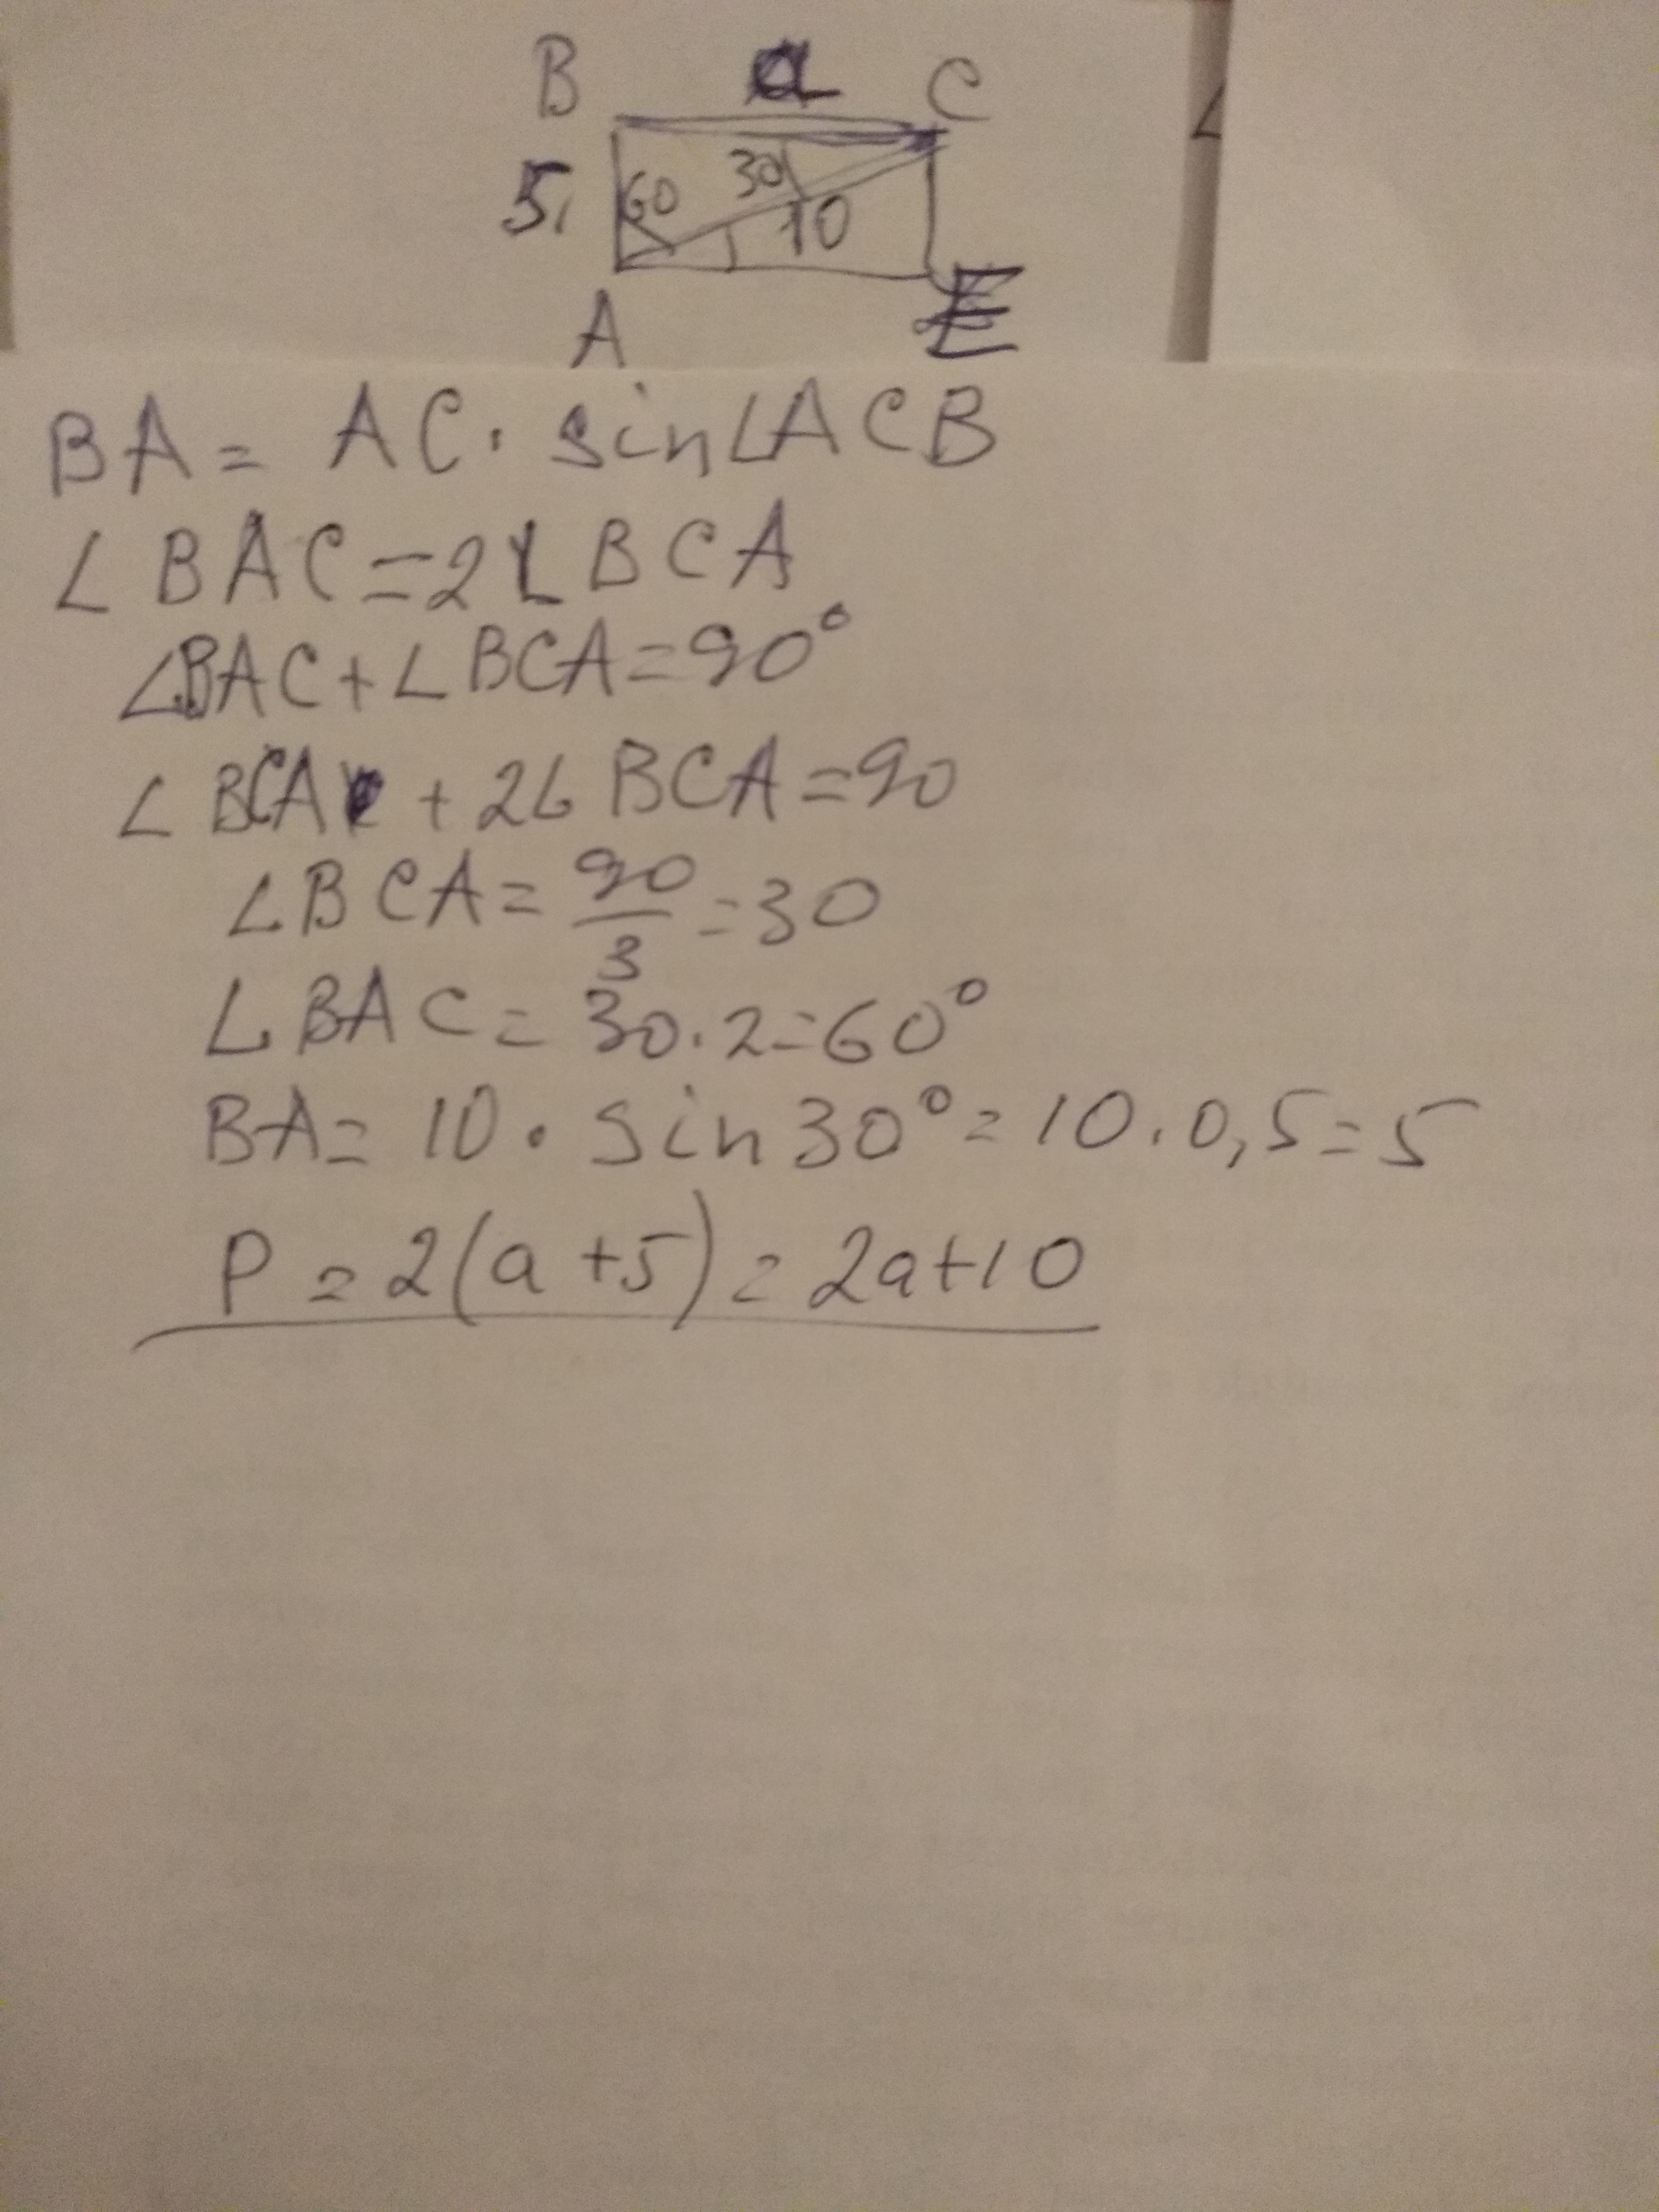 B a C
5 60 30 10
A E
BA = AC · sin∠ACB
∠BAC=2∠BCA
∠BAC+∠BCA=90°
∠BCA + 2∠BCA=90
∠BCA = 90/3 = 30
∠BAC = 30·2=60°
BA = 10 · sin30° = 10·0,5=5
P = 2(a+5) = 2a+10